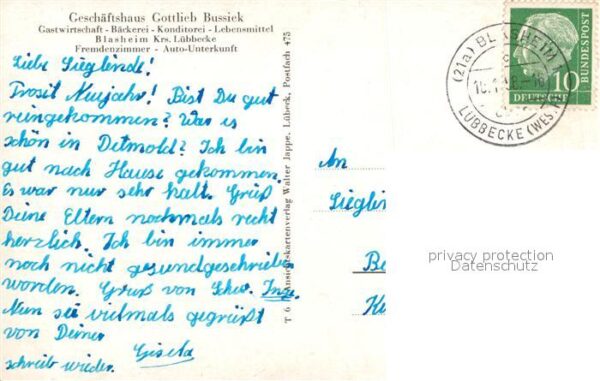 Geschäftshaus Gottlieb Bussiek
Gastwirtschaft - Bäckerei - Konditorei - Lebensmittel
Blasheim Krs. Lübbecke
Fremdenzimmer - Auto-Unterkunft
Liebe Sieglinde!
Prosit Neujahr! Bist Du gut
reingekommen? War es
schön in Detmold? Ich bin
gut nach Hause gekommen.
Es war nur sehr kalt. Grüß
Deine Eltern nochmals recht
herzlich. Ich bin immer
noch nicht gesundgeschrieben
worden. Gruß von Schw. Inge.
Nun sei vielmals gegrüßt
von Deiner
Gisela
schreib wieder.
T 6 Ansichtskartenverlag Walter Jappe, Lübeck, Postfach 475
An
Sieglin
Be
(21a) BLASHEIM
LÜBBECKE (WESTF)
10
DEUTSCHE
BUNDESPOST
privacy protection
Datenschutz